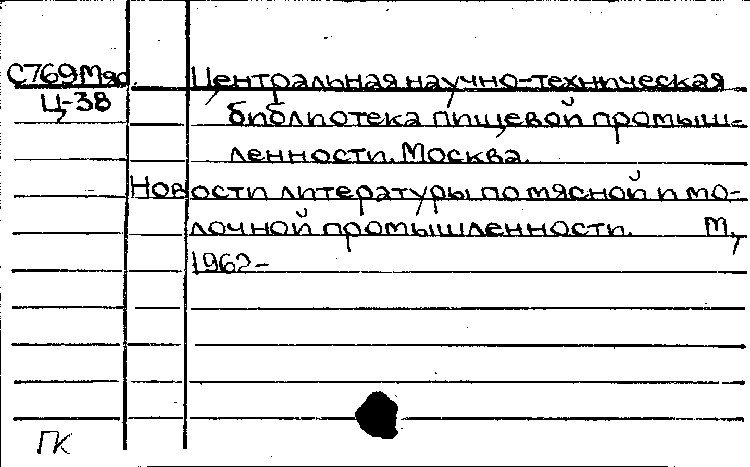 С769Мяс. Центральная научно-техническая
Ц-38 библиотека пищевой промыш-
ленности. Москва.
Новости литературы по мясной и мо-
лочной промышленности. М.,
1962-
ГК